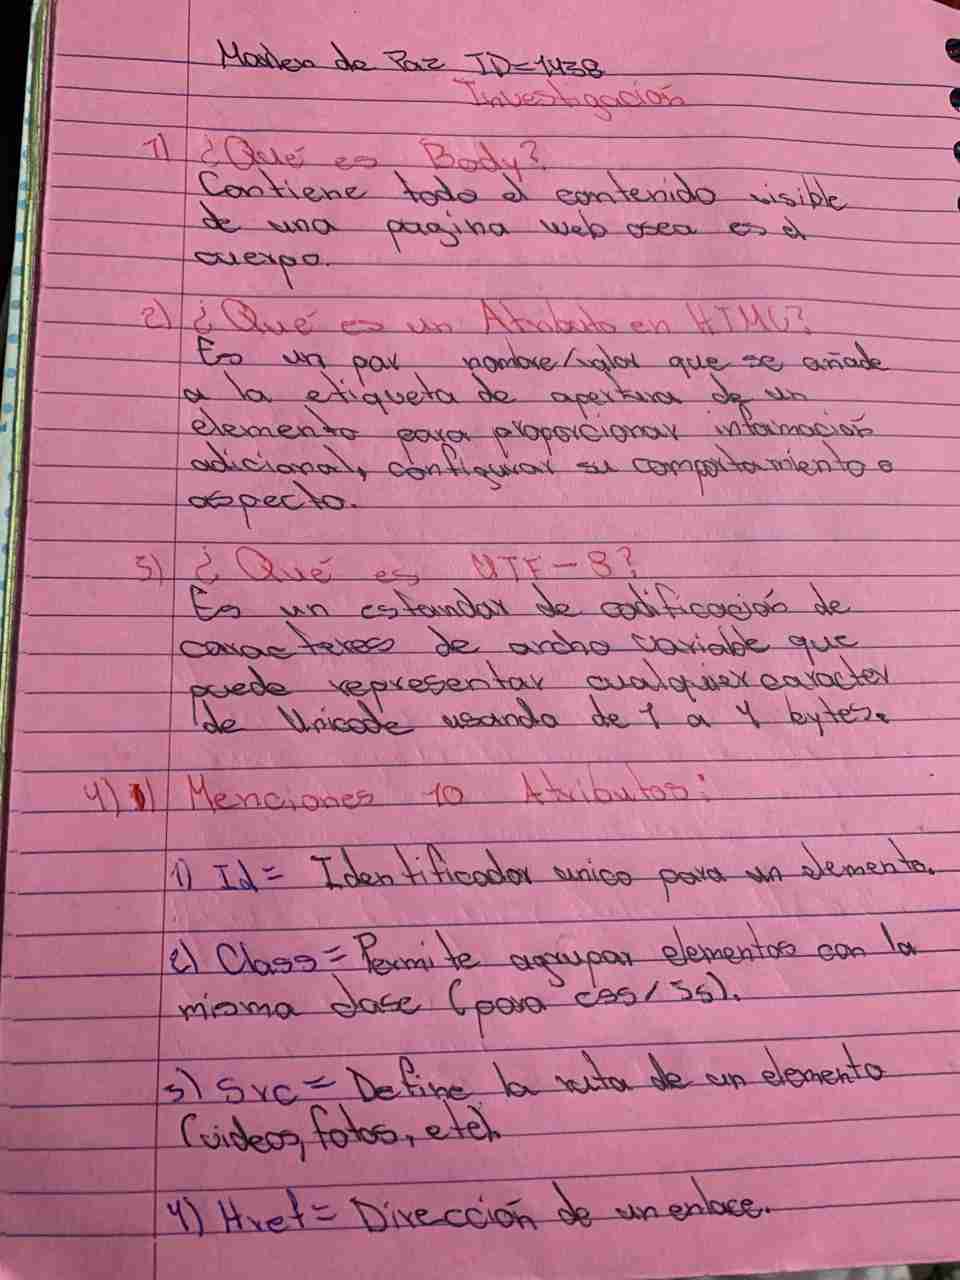 de Paz ID=1438
Investigación
1) ¿Qué es Body?
Contiene todo el contenido visible
de una pagina web osea es el
cuerpo.
2) ¿Qué es un Atributo en HTML?
Es un par nombre/valor que se añade
a la etiqueta de apertura de un
elemento para proporcionar información
adicional, configurar su comportamiento o
aspecto.
3) ¿Qué es UTF-8?
Es un estandar de codificación de
caracteres de ancho variable que
puede representar cualquier caracter
de Unicode usando de 1 a 4 bytes.
4) Menciones 10 Atributos:
1) Id= Identificador unico para un elemento.
2) Class= Permite agrupar elementos con la
misma clase (para css/Js).
3) Src= Define la ruta de un elemento
(videos, fotos, etc).
4) Href= Dirección de un enlace.